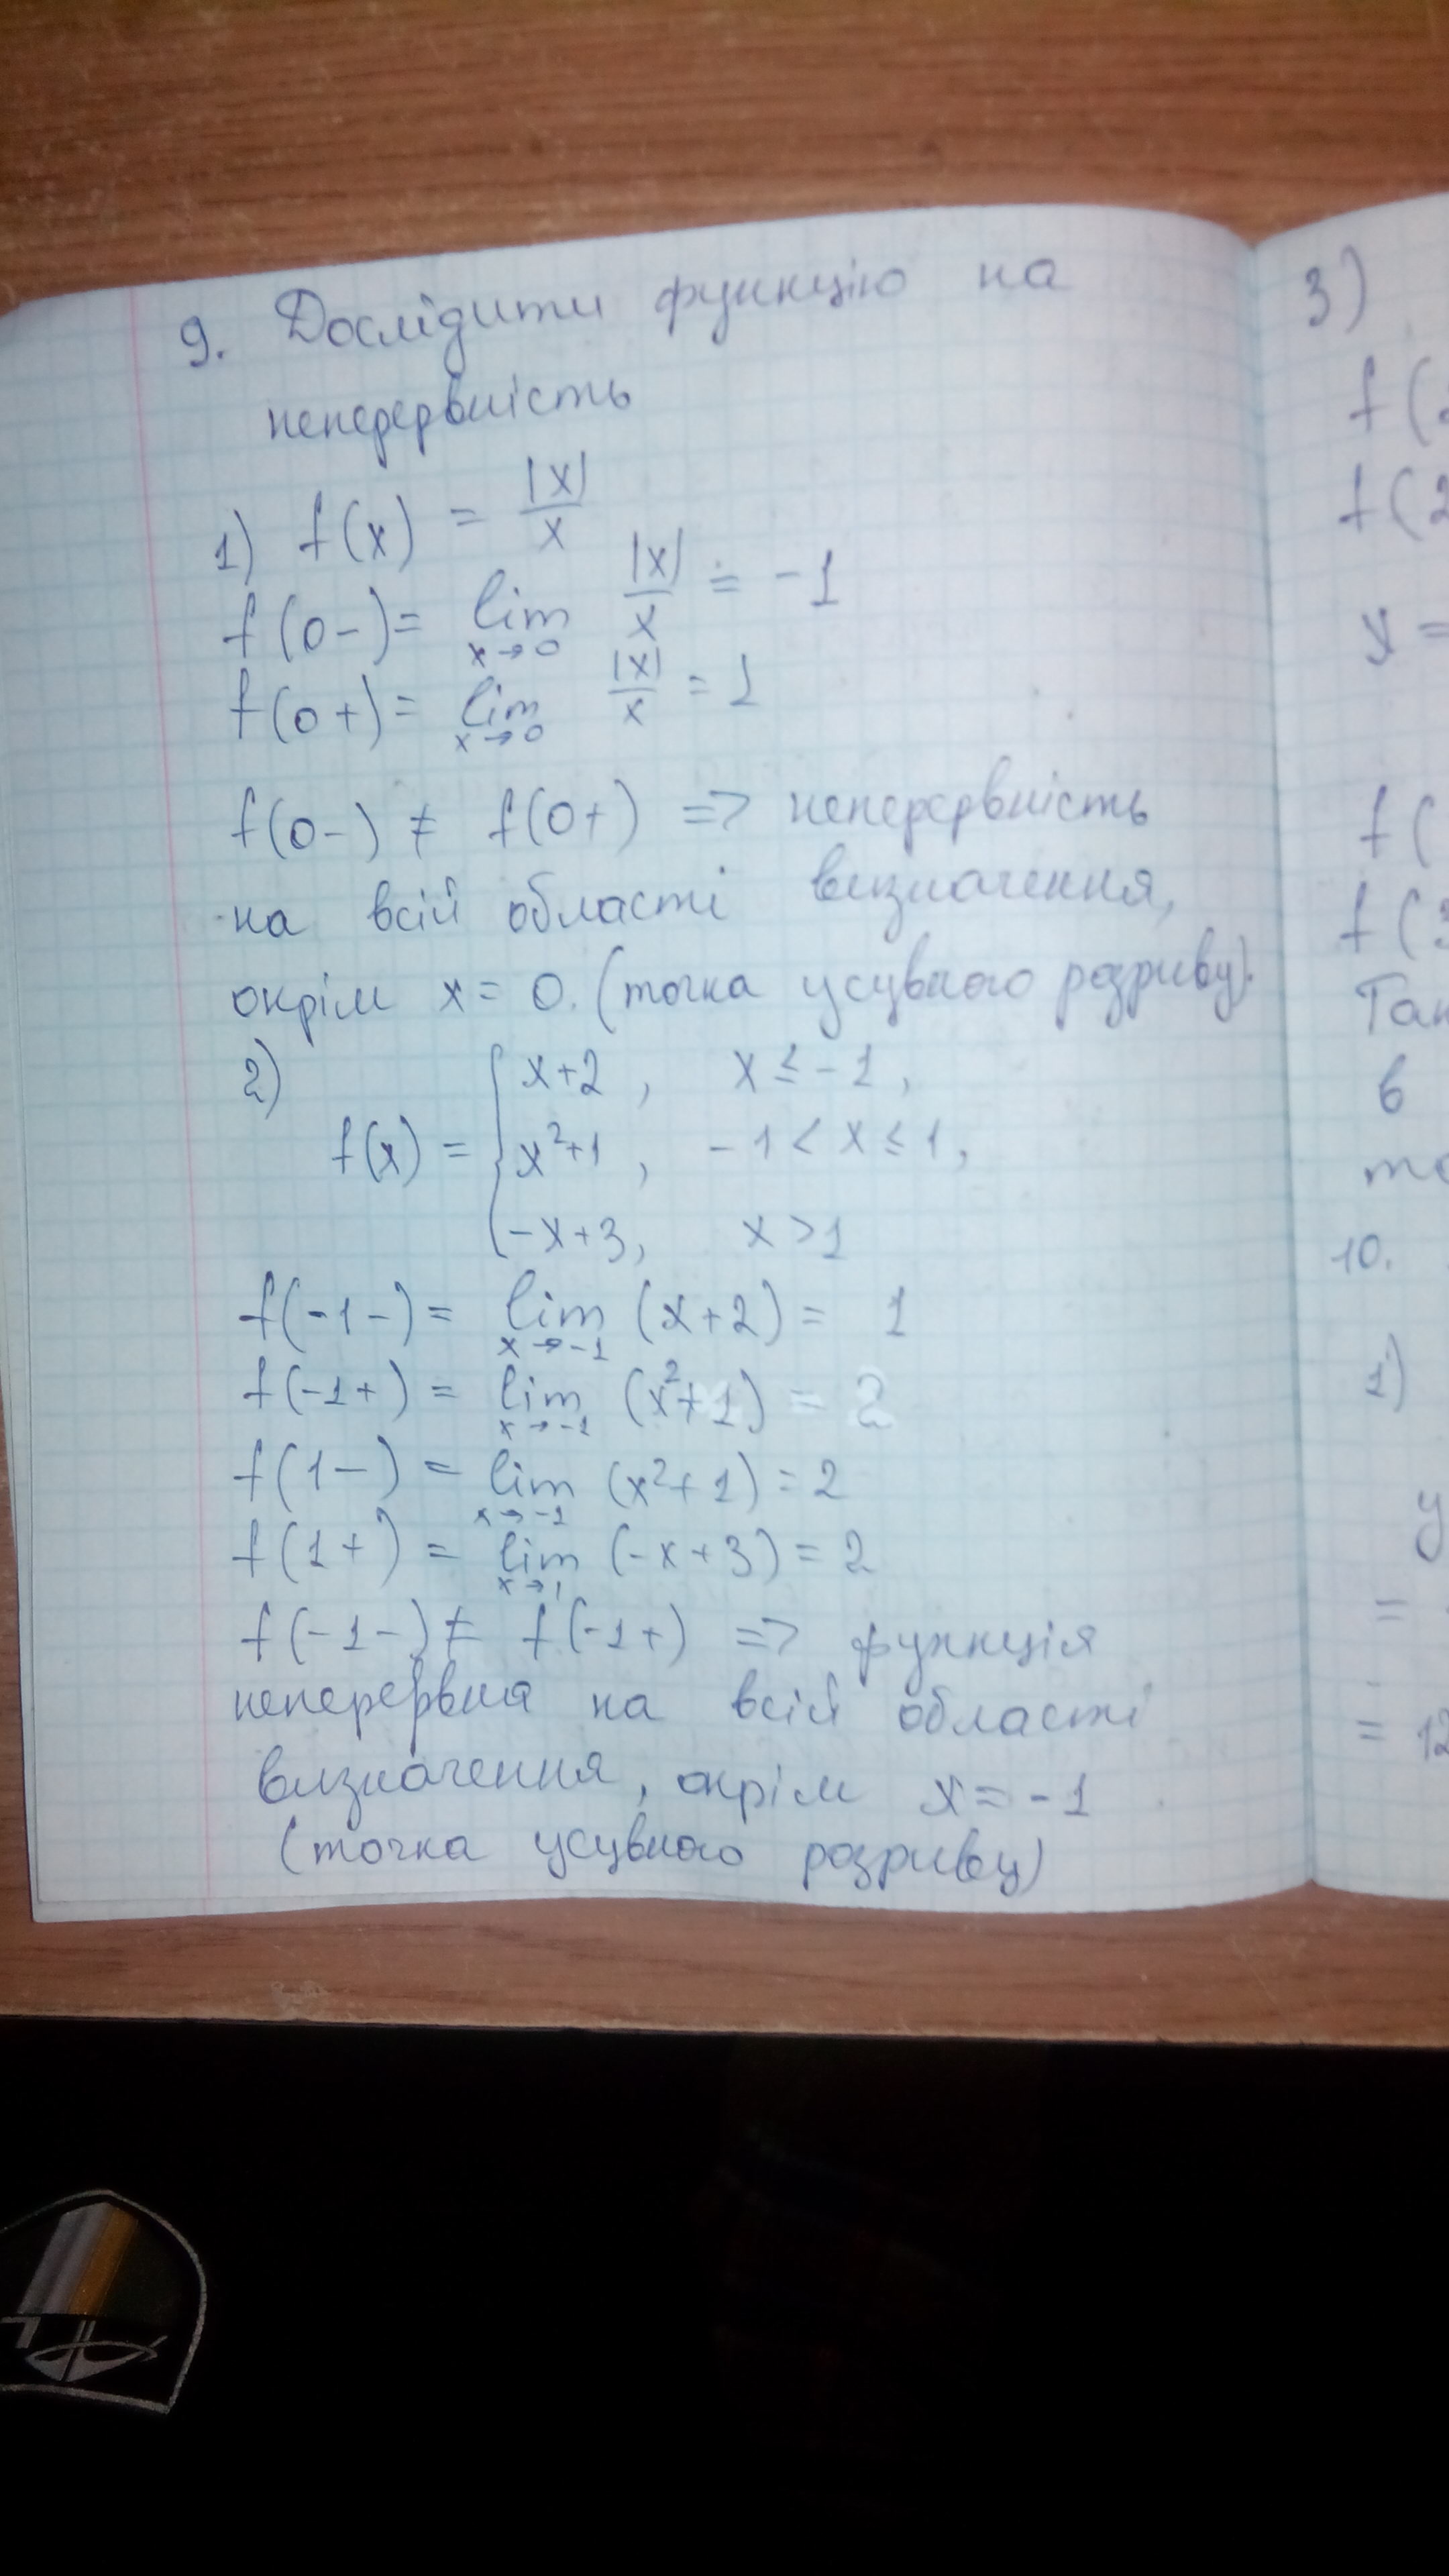 9. Дослідити функцію на
неперервність
1) f(x) = |x|/x
f(0-) = lim x→0 |x|/x = -1
f(0+) = lim x→0 |x|/x = 1
f(0-) ≠ f(0+) => неперервність
на всій області визначення,
окрім x = 0. (точка усувного розриву).
2)
x+2, x ≤ -1,
f(x) = { x²+1, -1 < x ≤ 1,
-x+3, x > 1
f(-1-) = lim x→-1 (x+2) = 1
f(-1+) = lim x→-1 (x²+1) = 2
f(1-) = lim x→-1 (x²+1) = 2
f(1+) = lim x→1 (-x+3) = 2
f(-1-) ≠ f(-1+) => функція
неперервна на всій області
визначення, окрім x = -1
(точка усувного розриву)
3)
f(
f(2
x =
f(
f(3
Так
в
то
10.
1)
y
=
= 12